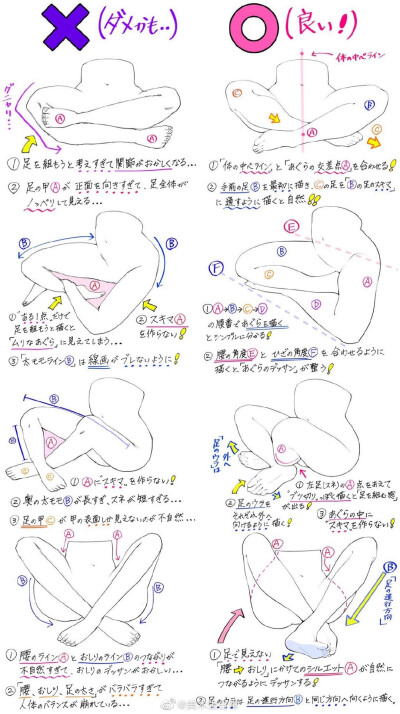 (ダメかも..)
(良い!)
体の中心ライン
グニャリ…
Ⓒ
Ⓑ
Ⓐ
Ⓐ
Ⓒ
Ⓐ
①足を組もうと考えすぎて関節がおかしくなる…
②足の甲Ⓐが正面を向きすぎて、足全体が
ノッペリして見える…
①「体の中心ライン」と「あぐらの交差点Ⓐを合わせる!
②手前の足Ⓑを最初に描き、Ⓒの足を「Ⓑの足のスキマ」
に通すように描くと自然!!
Ⓑ
Ⓑ
Ⓐ
Ⓔ
Ⓑ
Ⓕ
Ⓒ
Ⓐ
Ⓓ
①"ある1点"だけで
足を組もうと描くと
「ムリなあぐら」に見えてしまう…
②スキマⒶ
を作らない!
③「太モモラインⒷ」は線画がブレないように!
①Ⓐ→Ⓑ→Ⓒ→Ⓓ
の順番であぐらを描く
とシンプルに分かる!
②腰の角度Ⓔとひざの角度Ⓕを合わせるように
描くと「あぐらのデッサン」が整う!
Ⓑ
Ⓑ
Ⓐ
Ⓒ
Ⓒ
①Ⓐに"スキマ"を作らない!
②奥の太モモⒷが長すぎ、スネが短すぎる…
③足の甲Ⓒが甲の表面しか見えないのが不自然…
Ⓐ
「足のウラは
外へ」
①左足(スネ)のⒶ点をあえて
"ブツ切り"っぽく描くと「足を組む感」
が出る!
②足のウラを
それぞれ外へ
向けるように描く!
③あぐらの中に
"スキマ"を作らない!
Ⓐ
Ⓐ
Ⓑ
Ⓑ
Ⓐ
Ⓐ
Ⓑ
「足の進行方向」
①腰のラインⒶとおしりのラインⒷのつながりが
不自然すぎて、おしりのデッサンがおかしい…
②腰、おしり、足の太さ、がバラバラすぎて
人体のバランスが崩れている…
①足で見えない
「腰→おしりにかけてのシルエットⒶが自然に
つながるようにデッサンする!
②足のウラは足の進行方向Ⓑと同じ方向へ向くように描く。